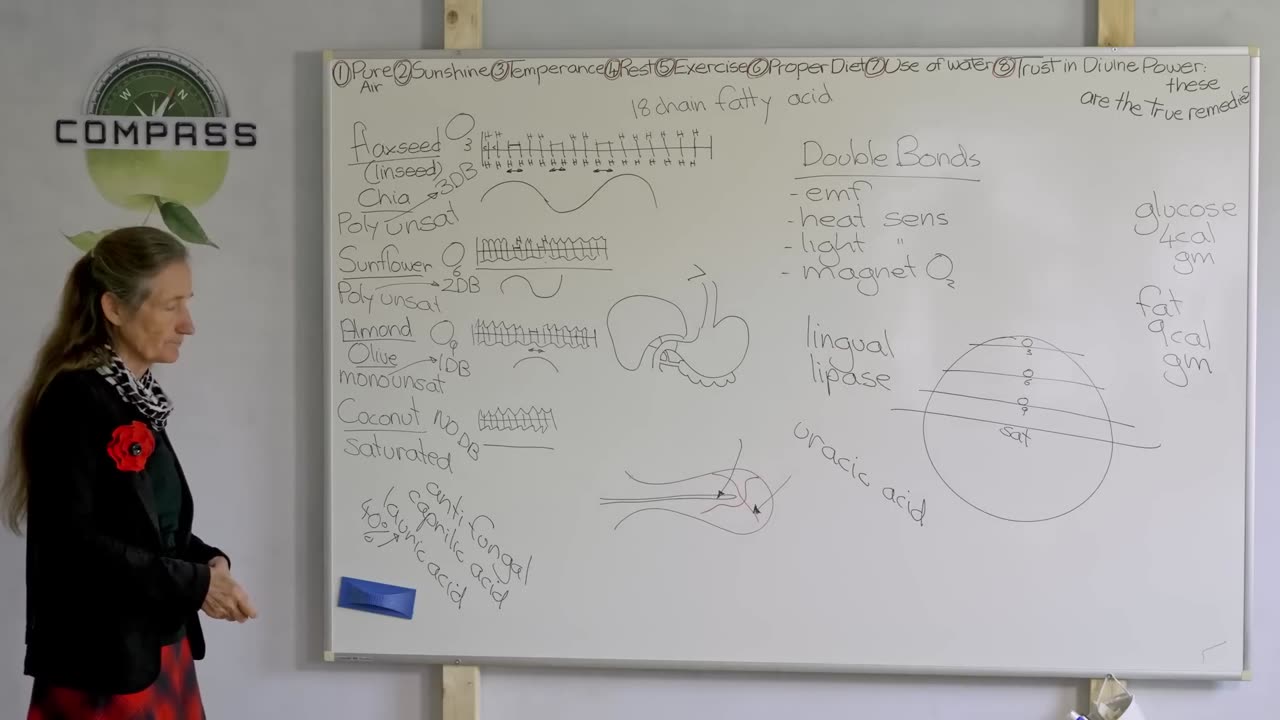 W N
COMPASS
① Pure ② Sunshine ③ Temperance ④ Rest ⑤ Exercise ⑥ Proper Diet ⑦ Use of water ⑧ Trust in Divine Power:
Air
these
are the true remedies
18 chain fatty acid
flaxseed O3
(linseed)
Chia 3DB
Poly unsat
Sunflower O6
Poly unsat 2DB
Almond O9
Olive 1DB
monounsat
Coconut No DB
saturated
50%
lauric acid
caprilic acid
anti fungal
Double Bonds
- emf
- heat sens
- light "
- magnet O2
lingual
lipase
uracic acid
O3
O6
O9
sat
glucose
4cal
gm
fat
9cal
gm